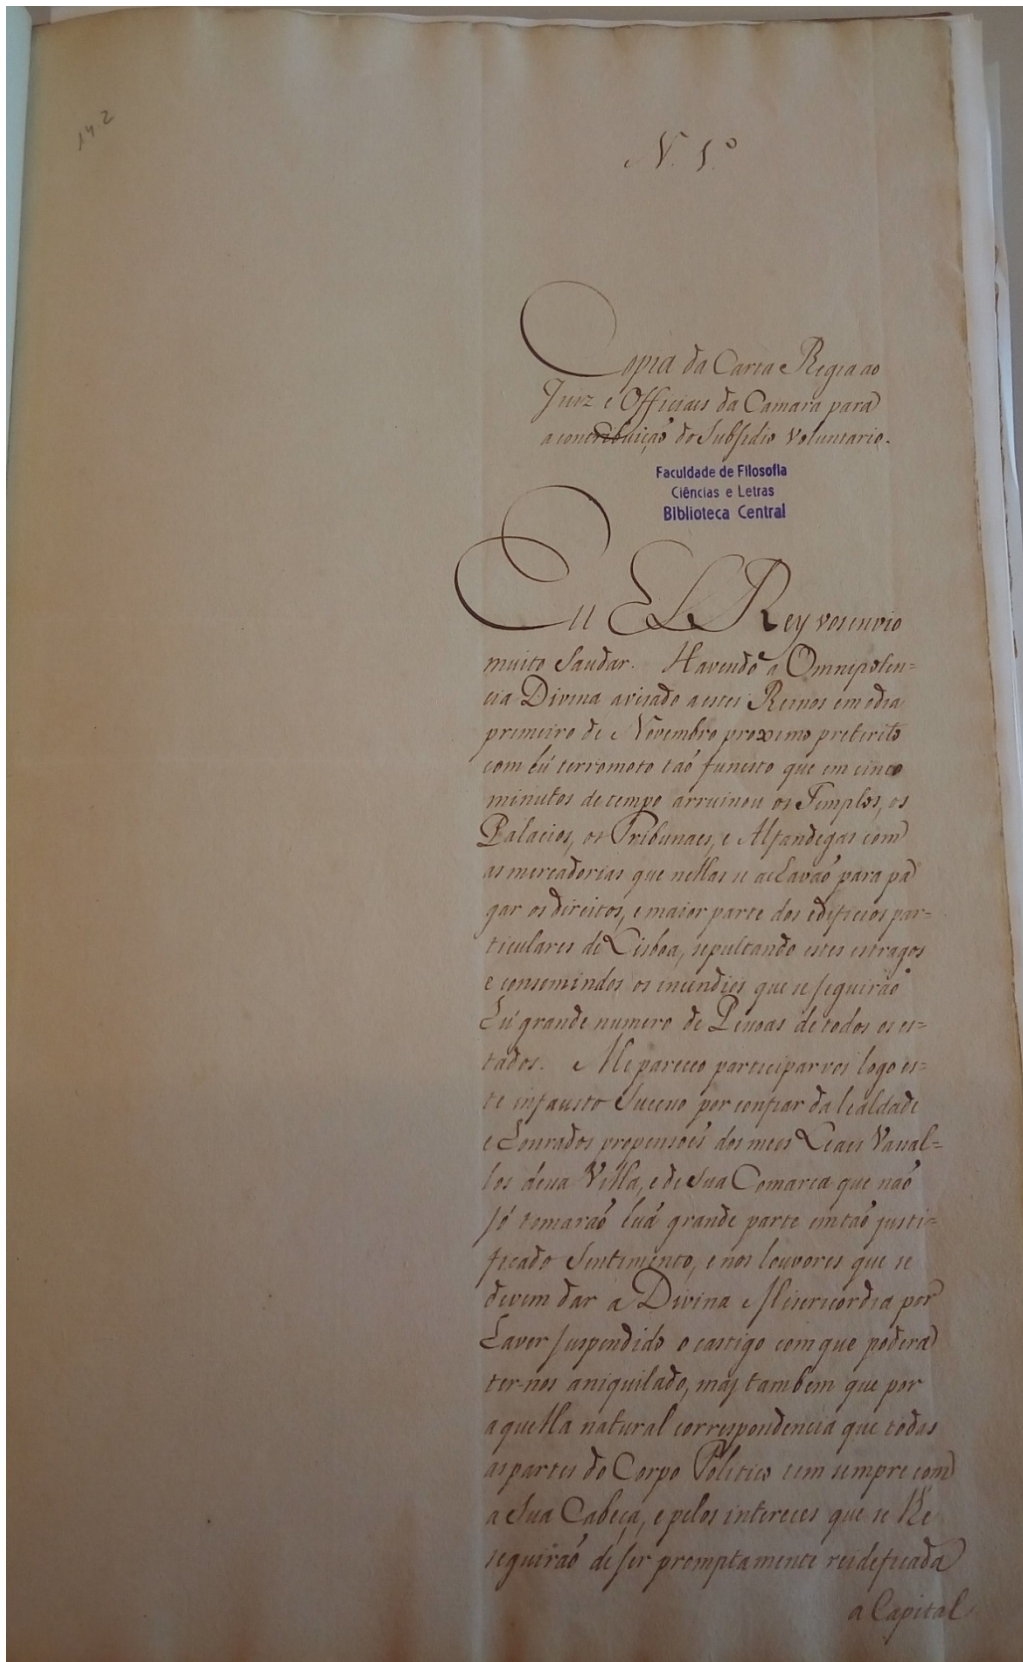 142
N. 1.º
Copia da Carta Regia ao
Juiz e Officiaes da Camara para
a contribuiçaõ do Subsidio Voluntario.
Faculdade de Filosofia
Ciências e Letras
Biblioteca Central
Eu El Rey vos envio
muito Saudar. Havendo a Omnipoten=
cia Divina avisado a estes Reinos em o dia
primeiro de Novembro proximo preterito
com hũ terromoto taõ funesto que em cinco
minutos de tempo arruinou os Templos, os
Palacios, os Tribunaes, e Alfandegas com
as mercadorias que nellas se achavaõ para pa
gar os direitos, e maior parte dos edificios par=
ticulares de Lisboa, sepultando estes estragos
e consemindos os incendios que se seguiraõ
hũ grande numero de Pessoas de todos os es=
tados. Me pareceo participarvos logo es=
te infausto Sucesso por confiar da lealdade
e honrados propensoẽs dos meos Leaes Vassal=
los dessa Villa, e de Sua Comarca que naõ
só tomaraõ huã grande parte em taõ justi=
ficado Sentimento, e nos louvores que se
devem dar a Divina Misericordia por
haver suspendido o castigo com que podera
ter-nos aniquilado, mas tambem que por
aquella natural correspondencia que todas
as partes do Corpo Politico tem sempre com
a Sua Cabeça, e pelos intereces que se Re
seguiraõ de ser promptamente reideficada
a Capital